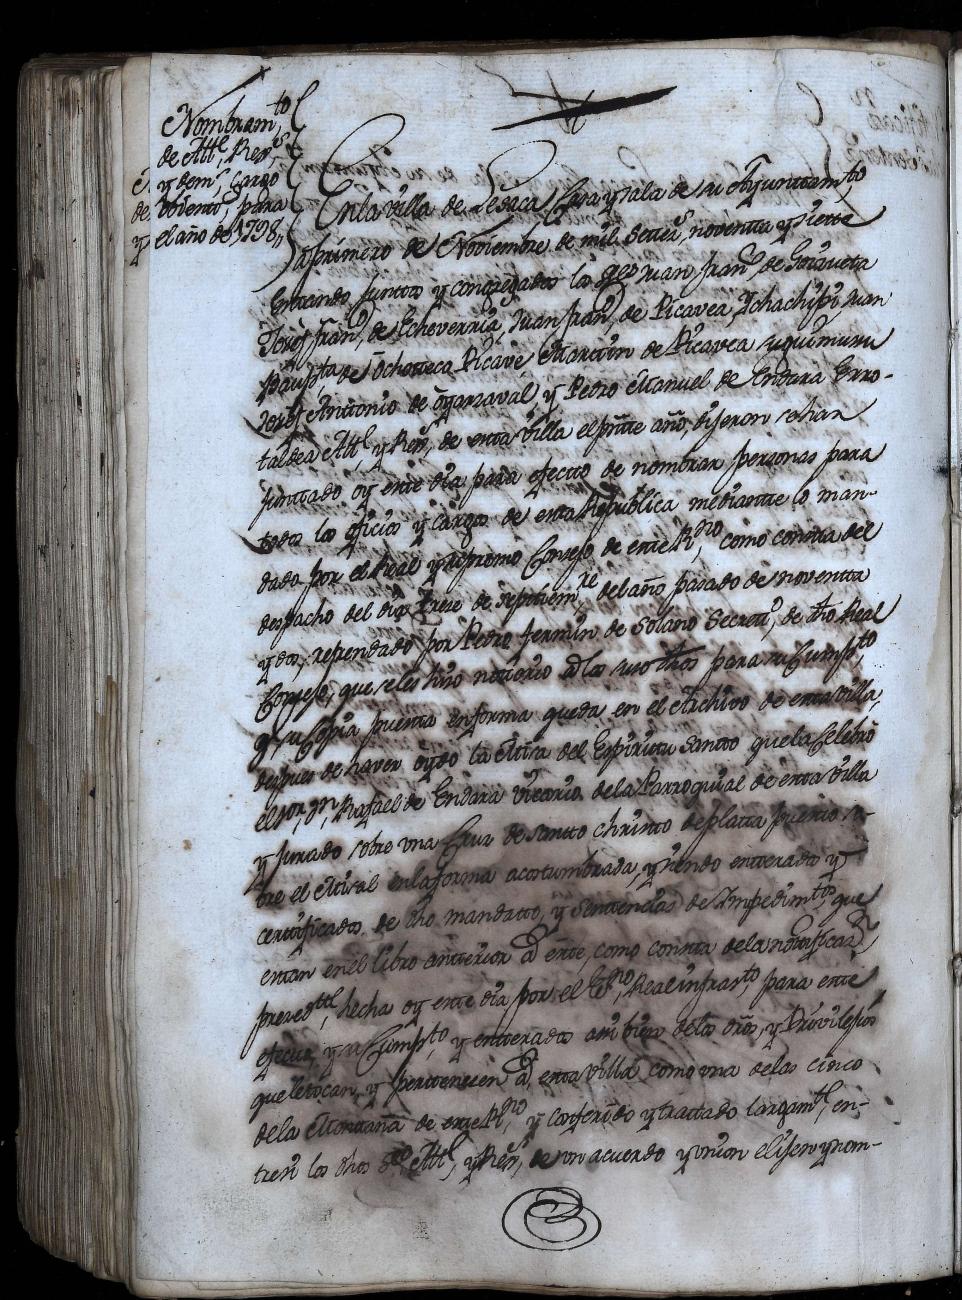 Nombramto
de Alle, Regs,
y dems, cargo
de obients, para
y el año de 1798,,
En la Villa de Lesaca Casa y sala de su Ayuntamto
a primero de Noviembre de mil settecs, noventta y siette
Estando junttos y congregados los Sres Juan Franco de Goizuetta
Josef Franco, de Echeverria, Juan Franco, de Picavea, Ichachipi, Juan
Baupta de Ochotteca Picave, Marttin de Picavea
Josef Anttonio de Oyarzaval y Pedro Manuel de Endara Erro-
taldea Alle, y Regs, de esta Villa el pntte año, dijeron se han
junttado oy este dia para efectto de nombrar personas para
todos los oficios y cargos de esta Republica mediante lo man-
dado por el Real y supremo Consejo de este Rno, como consta del
despacho del dia trece de Septtiemre del año pasado de noventta
y dos, refrendado por Pedro Fermin de Solano Secretto, de dho Real
Consejo, que se les hizo nottorio a los suso dhos para su Cumpto,
q, su Copia puesta en forma queda en el Archivo de esta Villa,
despues de haver oydo la Misa del Espirittu Santto que la Celebró
el Sor, Dn, Rafael de Endara Vicario de la Parroquial de esta Villa
y jurado sobre una Cruz de Santto Christto de platta puesto so-
bre el Misal en la forma acostumbrada, y siendo entterados y
certtificados, de dho mandatto, y Senttencias de Impedimttos que
estan en el libro antterior a este, como consta de la nottificazn,
precedtte, hecha oy este dia por el Esno, Real infrasto para este
efectto, y su Cumpto, y entterados tambien de los dros, y Privilejios
que le tocan, y perttenecen a esta Villa como una de las cinco
de la Monttaña de este Rno, y conferido y trattado largamte, en-
tre si los dhos Sres Alle, y Regs, de un acuerdo y union elijen y nom-